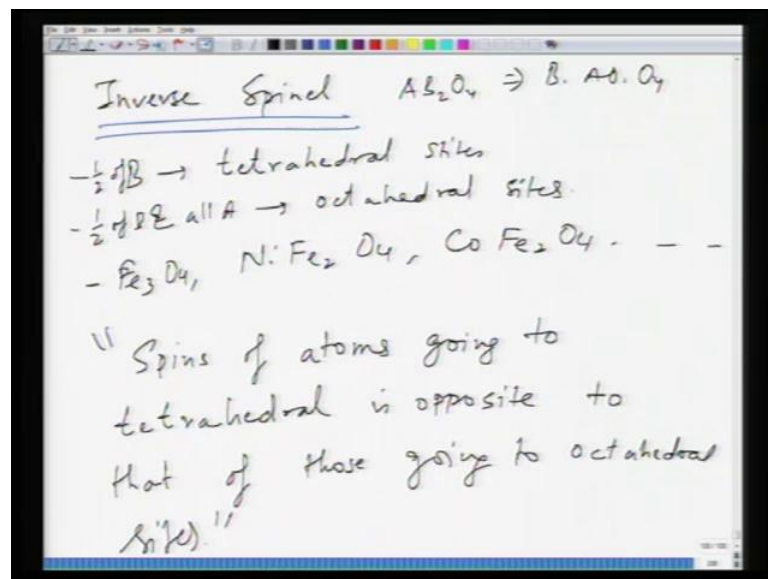 Inverse Spinel AB₂O₄ ⇒ B.AB.O₄
- ½ of B → tetrahedral sites
- ½ of B & all A → octahedral sites.
- Fe₃O₄, NiFe₂O₄, CoFe₂O₄. - -
"Spins of atoms going to
tetrahedral is opposite to
that of those going to octahedral
sites."